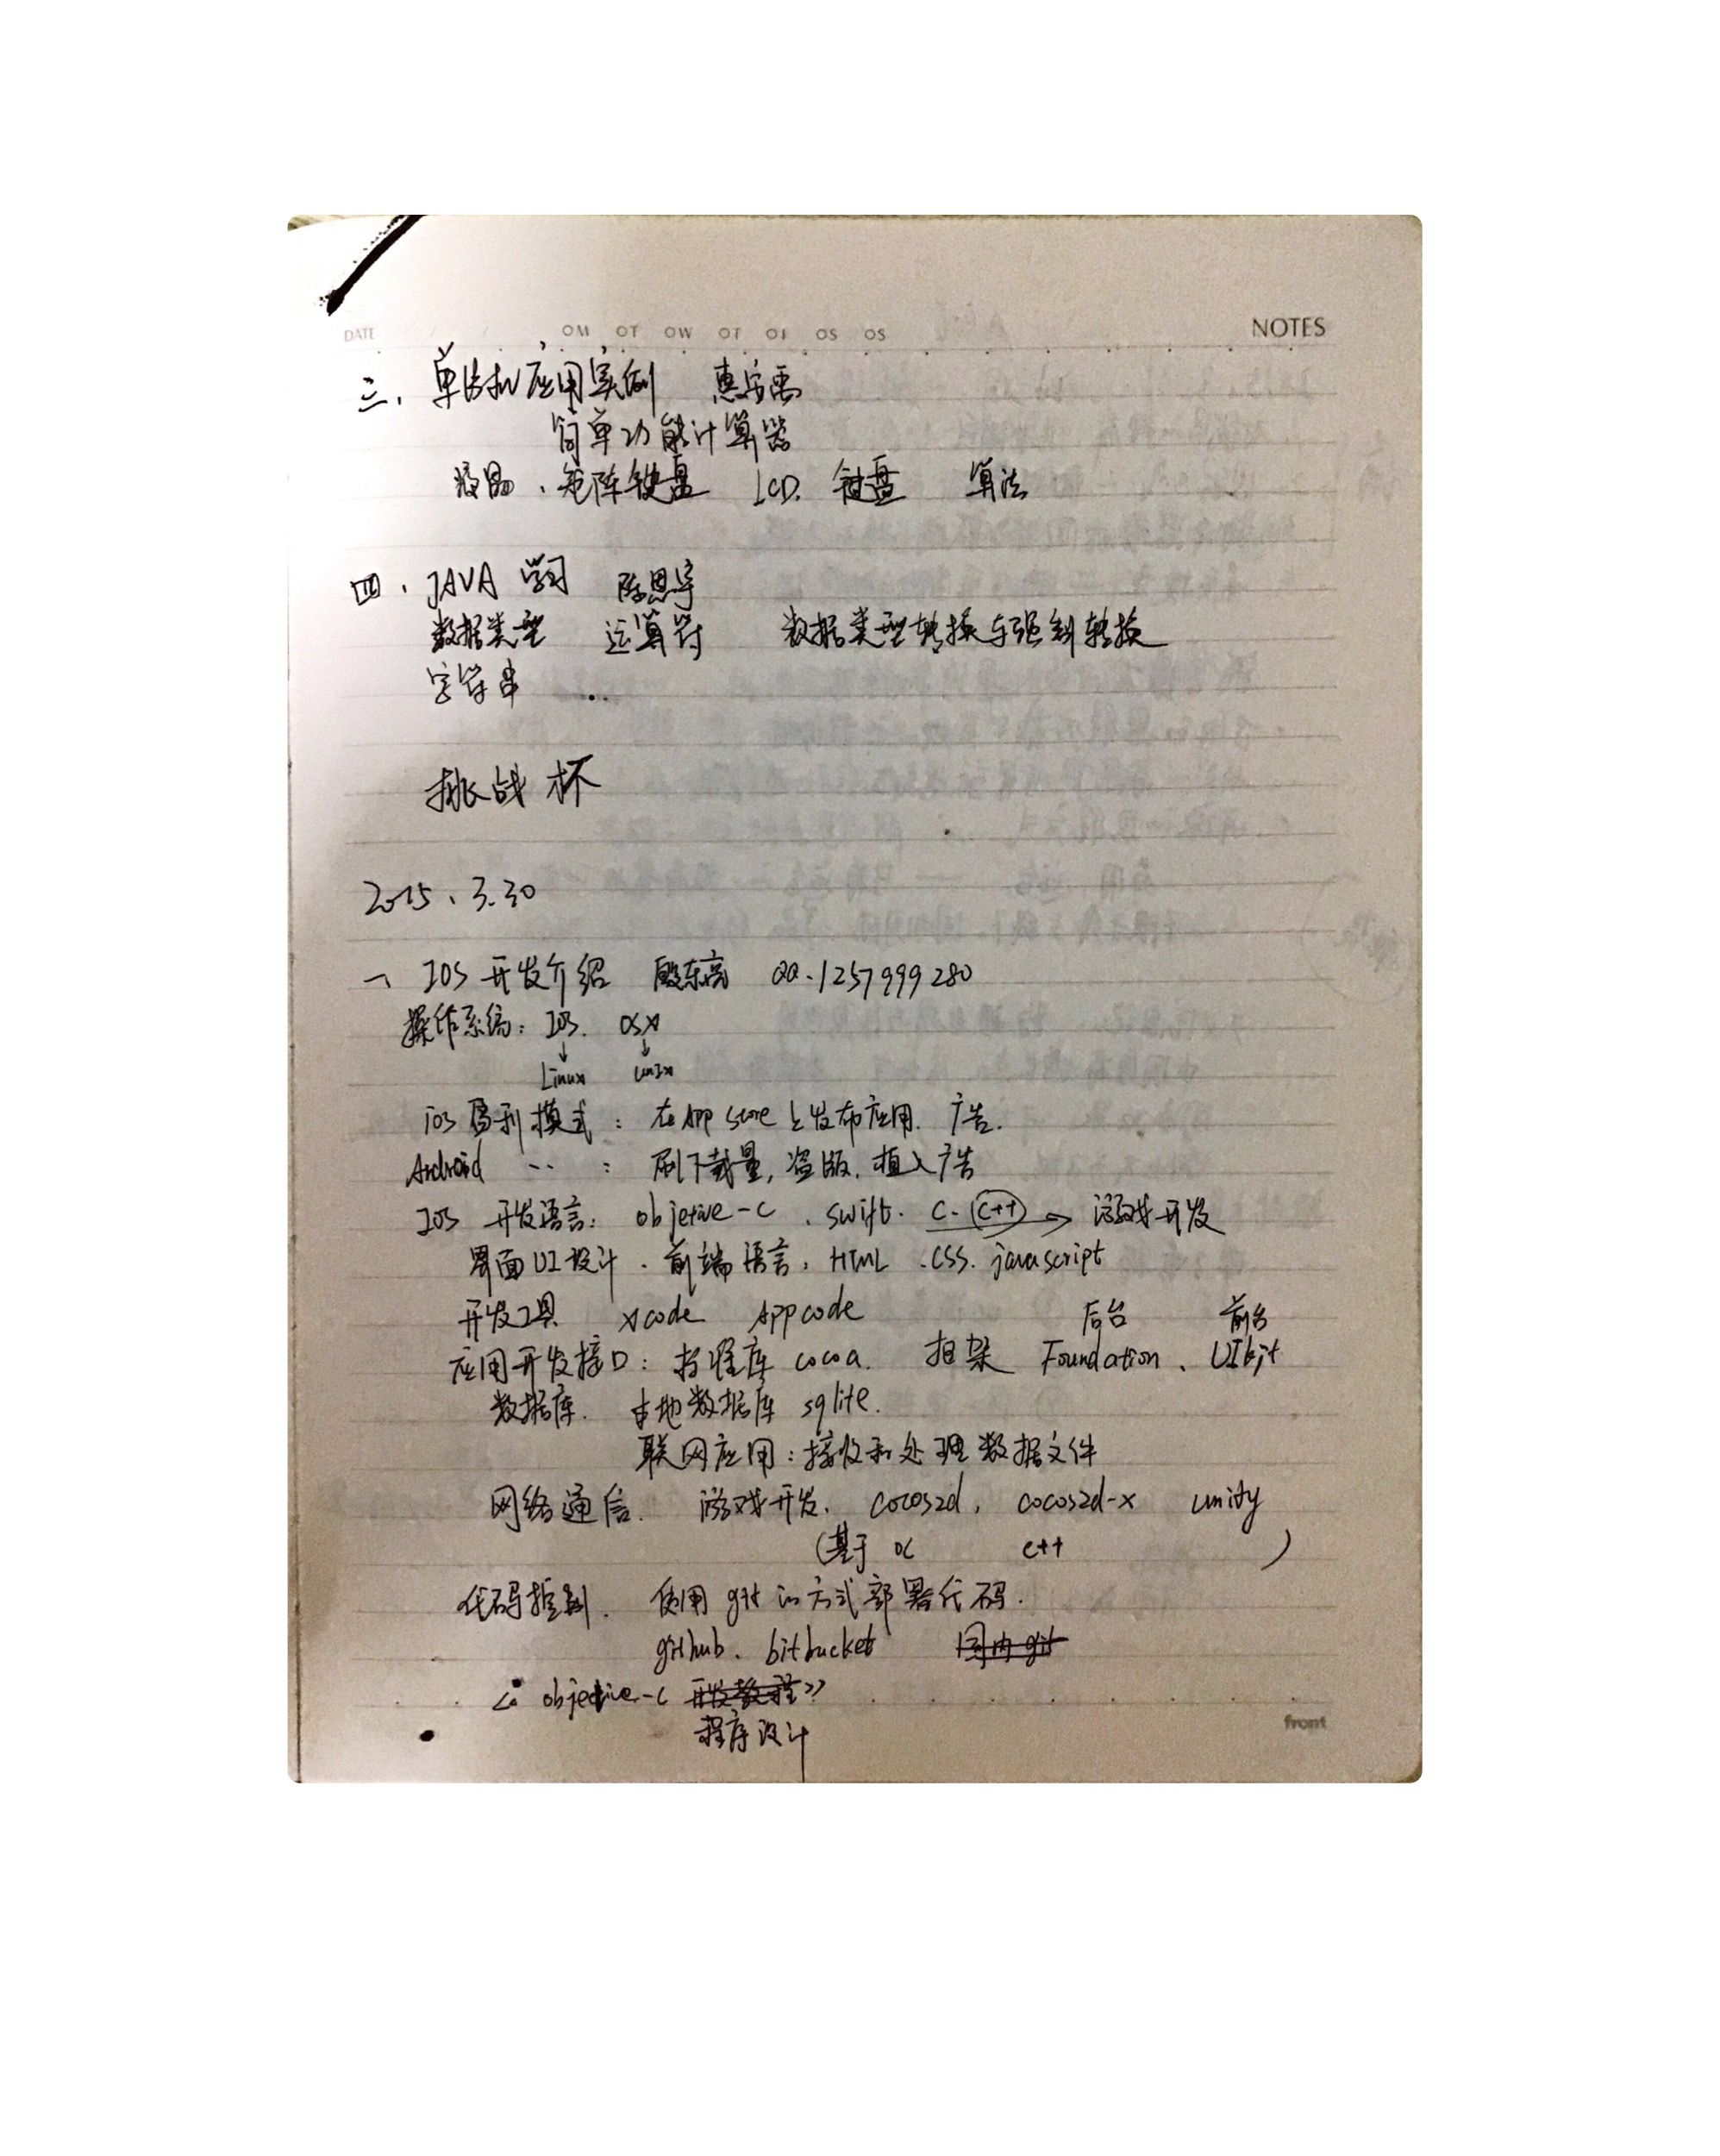 DATE / / OM OT OW OT OF OS OS NOTES
三、单片机应用实例
简单功能计算器
液晶、矩阵键盘 LCD. 键盘 算法
四、JAVA 学习 陈思宇
数据类型 运算符 数据类型转换与强制转换
字符串 ...
挑战杯
2015、3.30
一、IOS 开发介绍 殷东亮 QQ.1257999280
操作系统: IOS. OSX
↓ ↓
Linux unix
ios 盈利模式: 在App store上发布应用. 广告.
Android ‥ : 刷下载量, 盗版, 植入广告
IOS 开发语言: objetive-c . swift. C. C++ → 游戏开发
界面UI设计. 前端语言: HTML .CSS. javascript
开发工具 xcode Appcode 后台 前台
应用开发接口: 类库 cocoa. 框架 Foundation、UIkit
数据库. 本地数据库 sqlite.
联网应用: 接收和处理数据文件
网络通信. 游戏开发. cocos2d, cocos2d-x unity
(基于 oc c++ )
代码控制. 使用git的方式部署代码.
github. bitbucket 国内git
《objective-c 开发教程》
程序设计
front